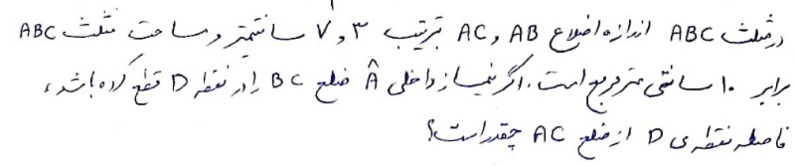 در مثلث ABC اندازه اضلاع AB و AC بترتیب ۳ و ۷ سانتیمتر و مساحت مثلث ABC
برابر ۱۰ سانتی متر مربع است. اگر نیمساز داخلی Â ضلع BC را در نقطه D قطع کرده باشد،
فاصله نقطه ی D از ضلع AC چقدر است؟